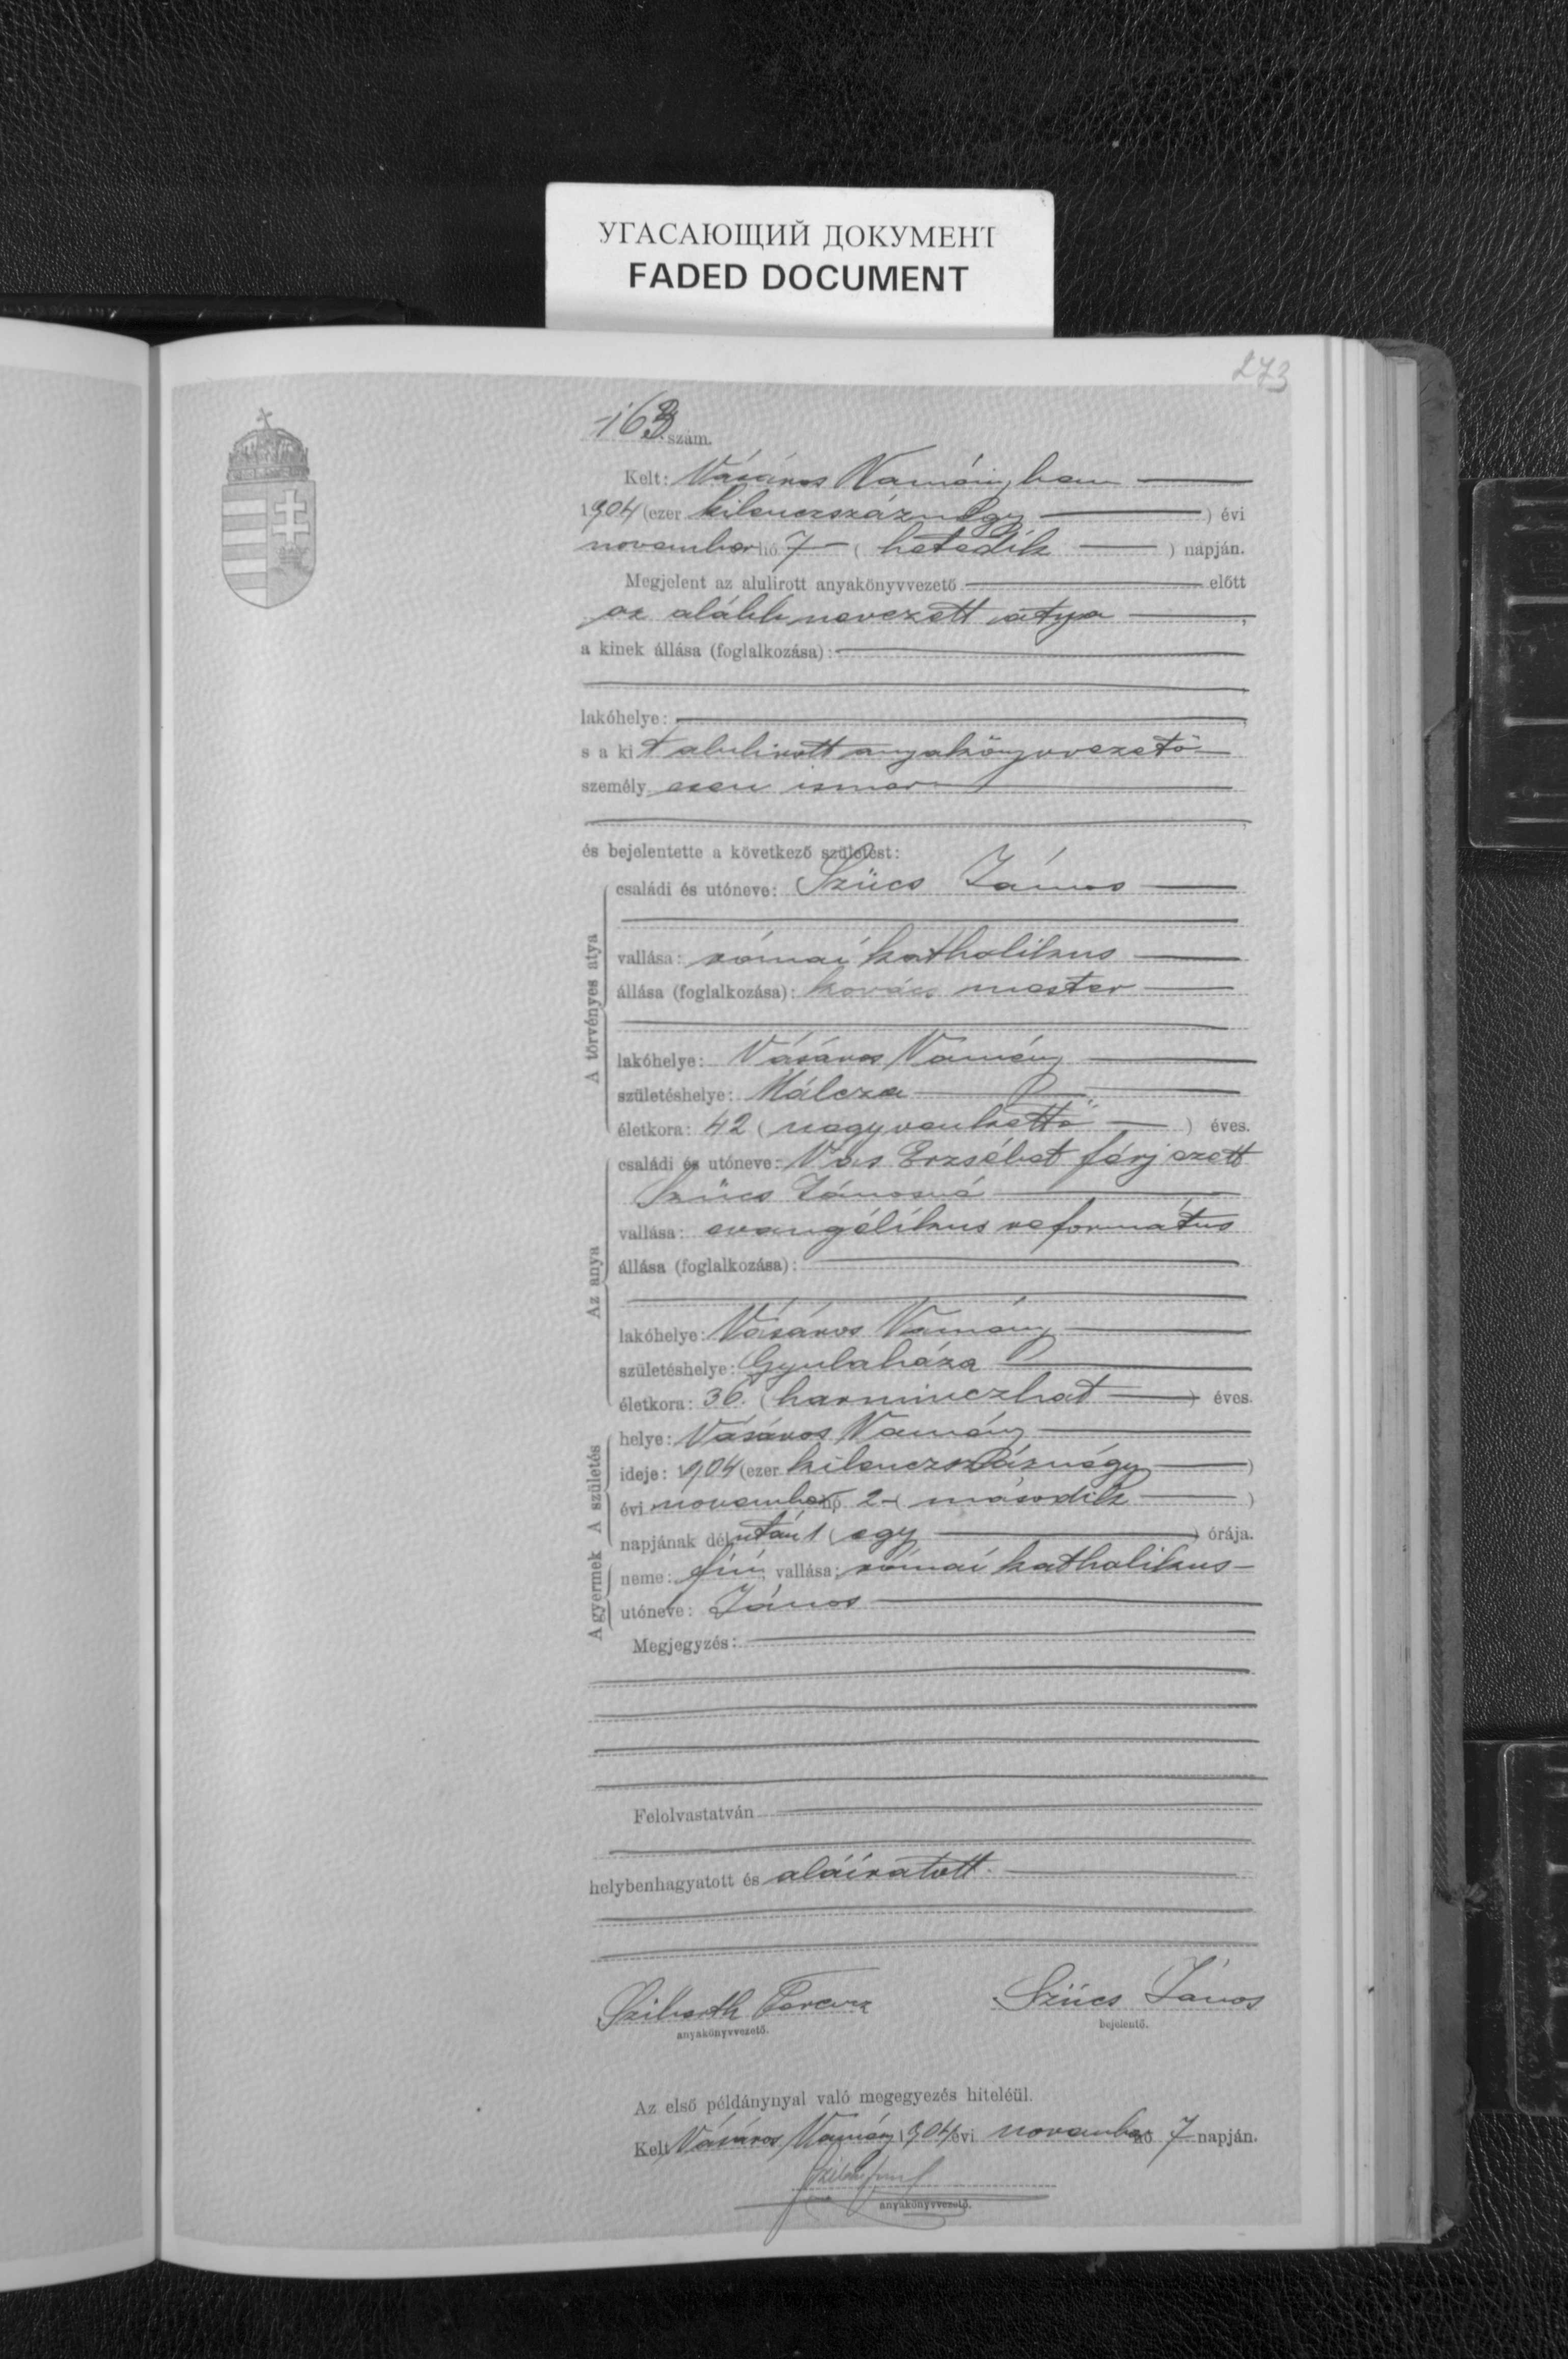 УГАСАЮЩИЙ ДОКУМЕНТ
FADED DOCUMENT
273
163 szám.
Kelt: Vásáros Naményban
1904 (ezer kilenczszáznégy) évi
november hó 7 (hetedik) napján.
Megjelent az alulirott anyakönyvvezető előtt
az alább nevezett atya,
a kinek állása (foglalkozása):
lakóhelye:
s a kit alulirott anyakönyvvezető
személyesen ismer
és bejelentette a következő születést:
A törvényes atya
családi és utóneve: Szücs János
vallása: római katholikus
állása (foglalkozása): kovács mester
lakóhelye: Vásáros Namény
születéshelye: Málcza
életkora: 42 (negyvenkettő) éves.
Az anya
családi és utóneve: Vas Erzsébet férjezett
Szücs Jánosné
vallása: evangélikus református
állása (foglalkozása):
lakóhelye: Vásáros Namény
születéshelye: Gyulaháza
életkora: 36. (harminczhat) éves.
A születés
helye: Vásáros Namény
ideje: 1904 (ezer kilenczszáznégy)
évi november hó 2 (második)
napjának délután 1 (egy) órája.
A gyermek
neme: fiú, vallása: római katholikus
utóneve: János
Megjegyzés:
Felolvastatván
helybenhagyatott és aláíratott.
Ferencz Szücs János
anyakönyvvezető. bejelentő.
Az első példánynyal való megegyezés hiteléül.
Kelt Vásáros Namény 1904 évi november hó 7 napján.
anyakönyvvezető.